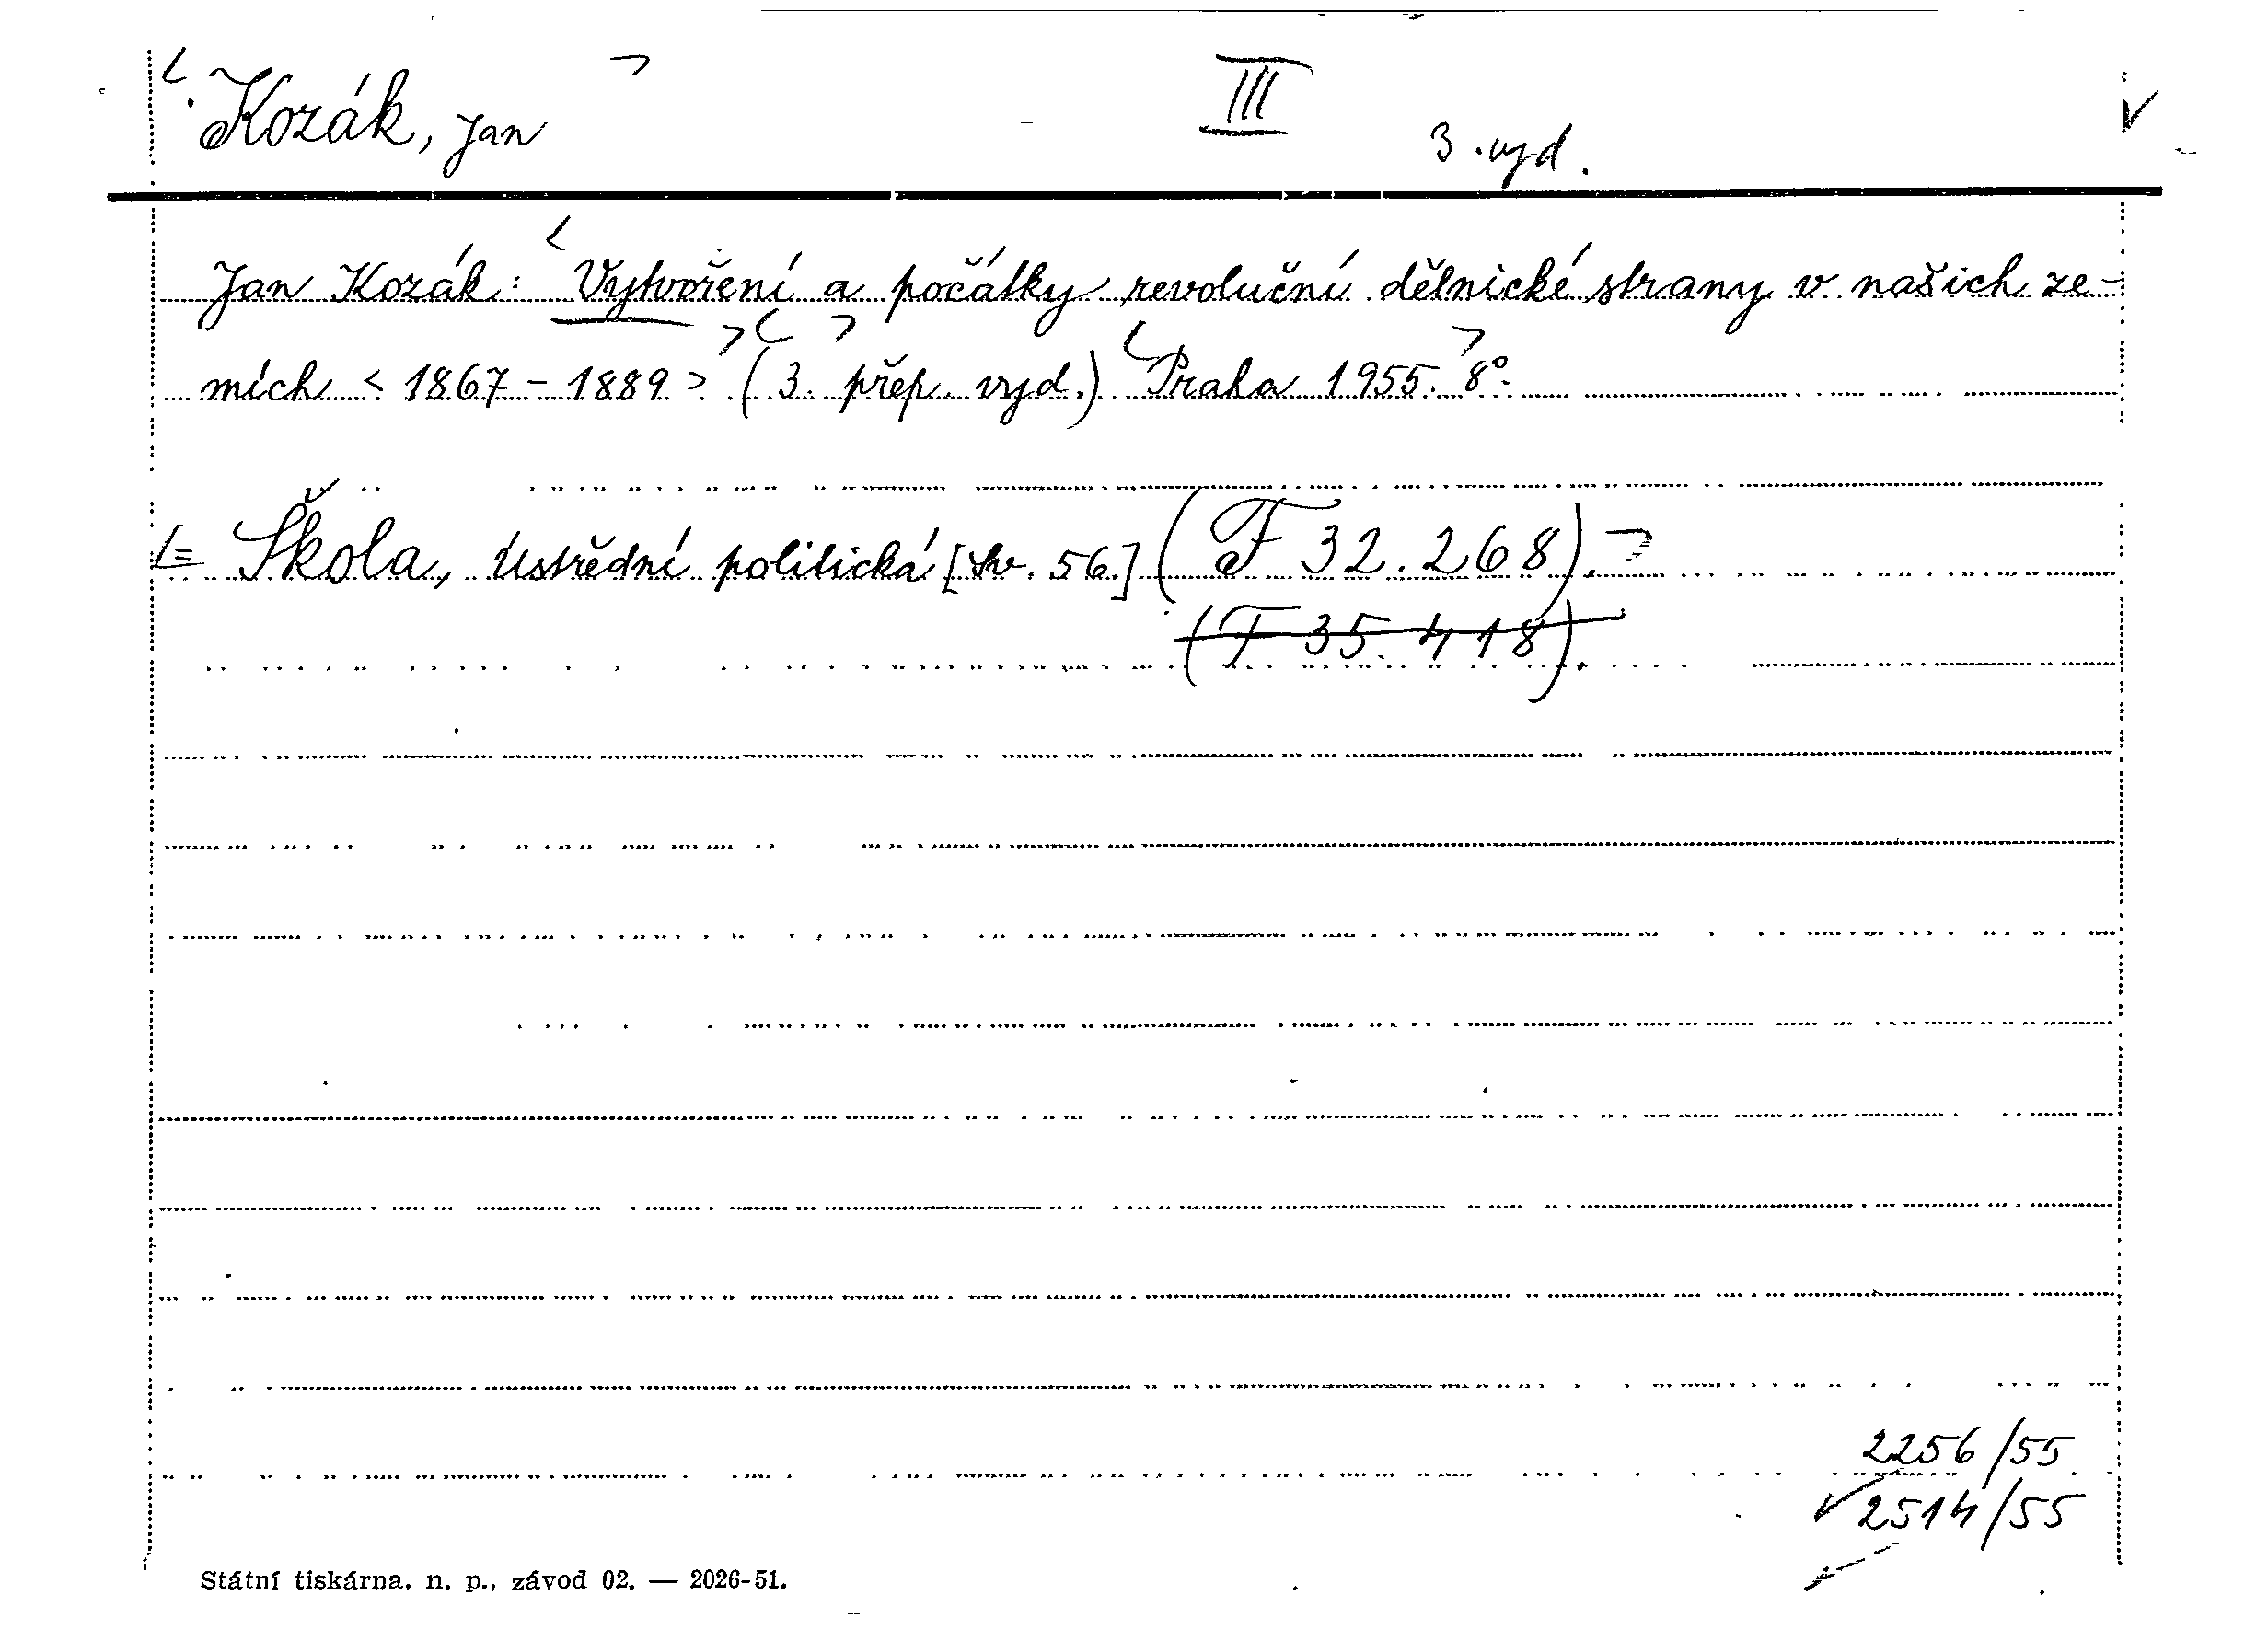 Kozák, Jan III 3. vyd.
Jan Kozák: Vytvoření a počátky revoluční dělnické strany v našich ze-
mích < 1867 - 1889 > (3. přep. vyd.) Praha 1955. 8°.
= Škola, Ústřední politická [sv. 56.] (F 32.268).
(F 35.418).
2256/55
2514/55
Státní tiskárna, n. p., závod 02. — 2026-51.